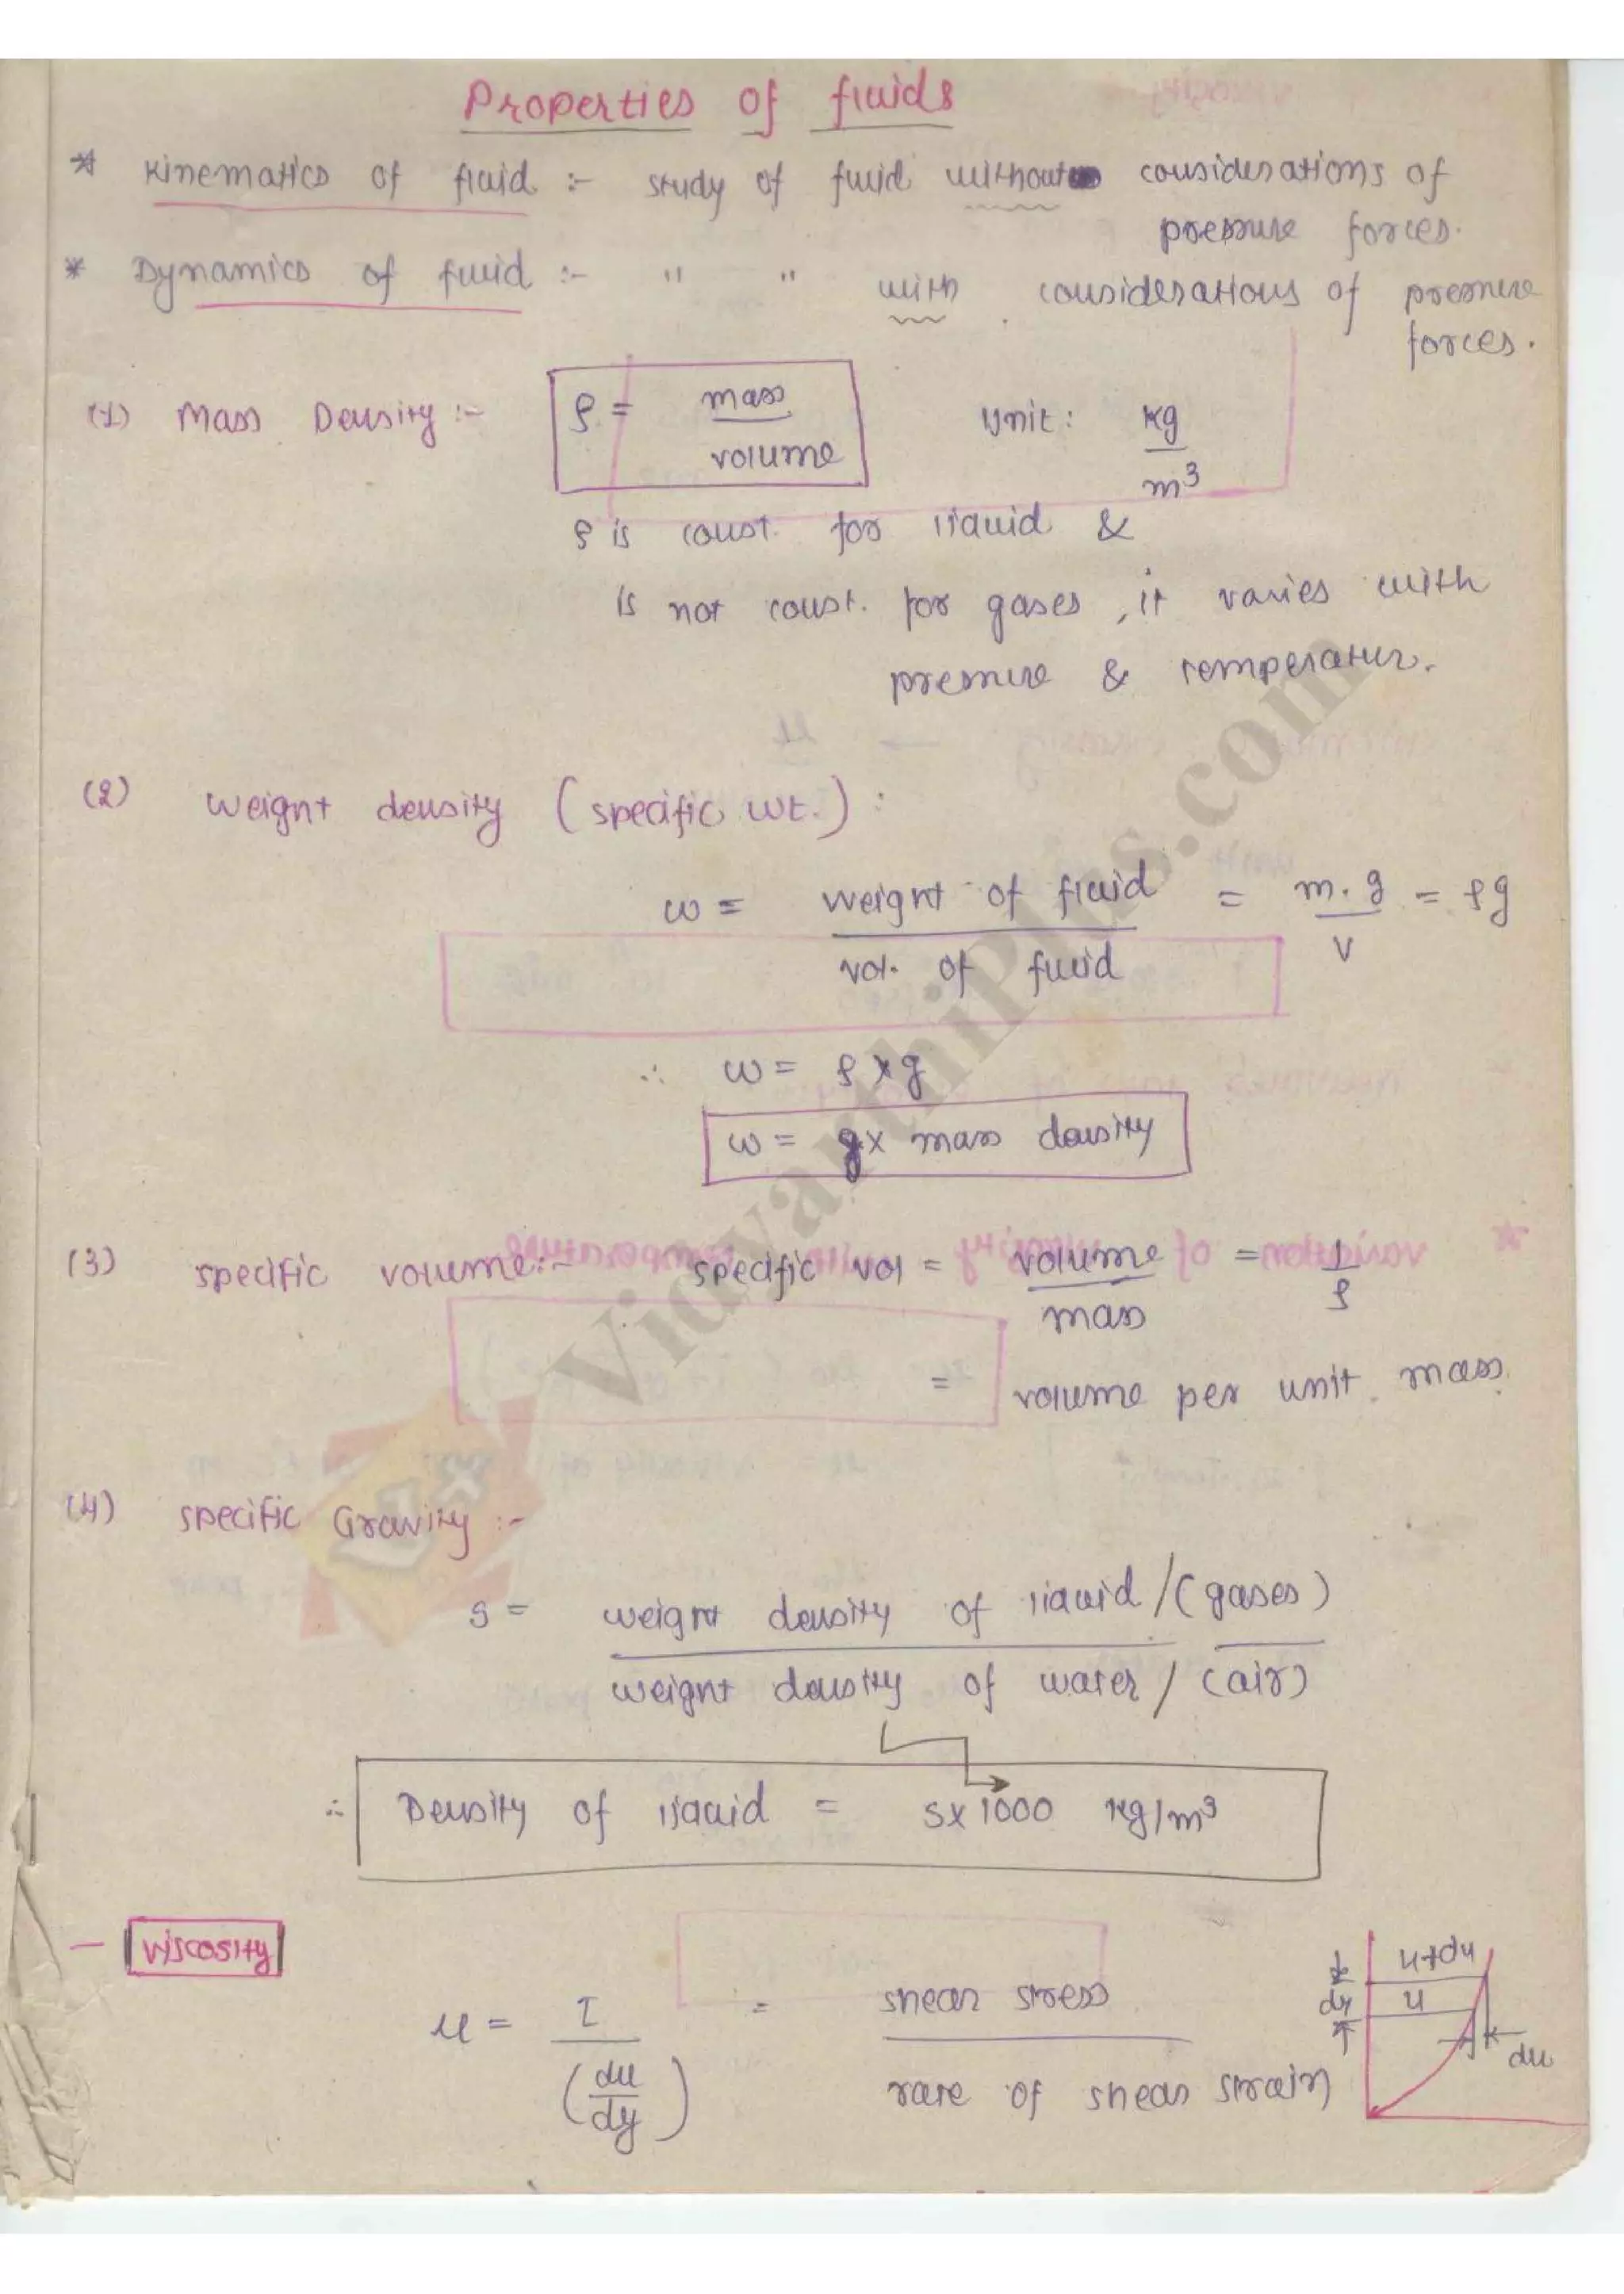 Properties of fluids
* Kinematics of fluid :- study of fluid without considerations of
pressure forces.
* Dynamics of fluid :- " " with considerations of pressure
forces.
(1) Mass Density :- ρ = mass / volume Unit: kg / m³
ρ is const. for liquid &
is not const. for gases, it varies with
pressure & temperatur.
(2) weight density (specific wt.) :
w = weight of fluid / vol. of fluid = m.g / v = ρg
∴ w = ρ x g
w = g x mass density
(3) specific volume:- specific vol = volume / mass = 1 / ρ
= volume per unit mass.
(4) specific Gravity :-
S = weight density of liquid / (gases)
weight density of water / (air)
∴ Density of liquid = S x 1000 kg/m³
- viscosity
μ = τ / (du/dy) = shear stress / rate of shear strain
u+du
dy
u
du
VidyarthiPlus.com